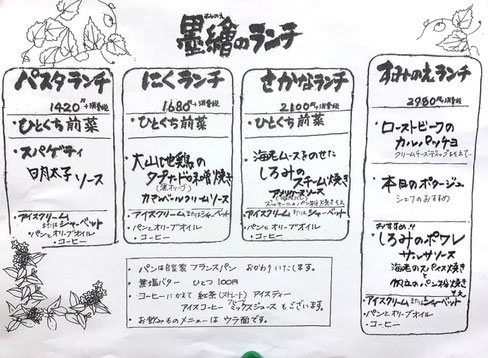 すみのえ
墨繪のランチ
パスタランチ
1420円+消費税
・ひとくち前菜
・スパゲティ
明太子ソース
・アイスクリームまたはシャーベット
・パンとオリーブオイル
・コーヒー
にくランチ
1680円+消費税
・ひとくち前菜
・大山地鶏の
タプナード味噌焼き
(黒オリーブ)
カマンベールクリームソース
・アイスクリームまたはシャーベット
・パンとオリーブオイル
・コーヒー
せかなランチ
2100円+消費税
・ひとくち前菜
・海老ムースをのせた
しろみの
スチーム焼き
アメリケーヌソース
・アイスクリームまたはシャーベット
・パンとオリーブオイル
・コーヒー
すみのえランチ
2980円+消費税
・ローストビーフの
カルパッチョ
クリームチーズディップをそえて
・本日のポタージュ
シェフのおすすめ
おすすめ!!
・しろみのポワレ
サンサソース
海老のスパイス焼きと
帆立のパン粉焼き
そえ
・アイスクリームまたはシャーベット
・パンとオリーブオイル
・コーヒー
・パンは自家製フランスパン おかわりいたします。
・無塩バター ひとつ100円
・コーヒーにかえて 紅茶(ストレート) アイスティー
アイスコーヒー ミックスジュースもございます。
・お飲みものメニューは ウラ面です。